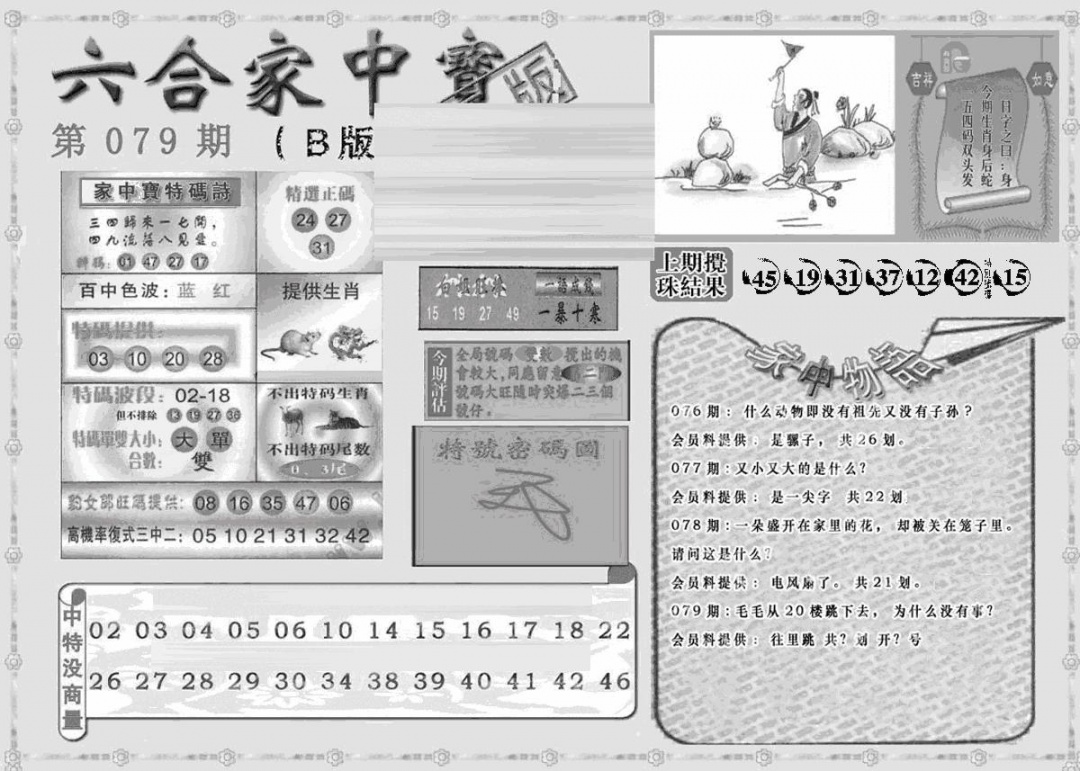 六合家中寶
版
第079期
(B版
家中寶特碼詩
三四歸來一七開，
四九流落八見登。
01 47 27 17
精選正碼
24 27
31
百中色波：蓝 红
提供生肖
特碼提供：
03 10 20 28
特碼波段：02-18
但不排除 13 19 27 36
特碼單雙大小：大 單
合數：雙
不出特码生肖
不出特码尾数
0、3尾
08 16 35 47 06
高機率復式三中二：05 10 21 31 32 42
15 19 27 49
一語成讖
一暴十寒
今期評估
全局號碼 雙數 攪出的機
會較大，同應留意 二
號碼大旺隨時突爆二三個
號仔。
特號密码圖
吉祥
如意
一日字之曰：身
今期生肖身后蛇
五四码双头发
上期攪
珠結果
45 19 31 37 12 42 特别號碼 15
家中物語
076期：什么动物即没有祖先又没有子孙？
会员料提供： 是骡子， 共26划。
077期：又小又大的是什么？
会员料提供： 是一尖字 共22划
078期：一朵盛开在家里的花， 却被关在笼子里。
请问这是什么？
会员料提供： 电风扇了。 共21划。
079期：毛毛从20楼跳下去， 为什么没有事？
会员料提供： 往里跳 共？划 开？号
中特没商量
02 03 04 05 06 10 14 15 16 17 18 22
26 27 28 29 30 34 38 39 40 41 42 46